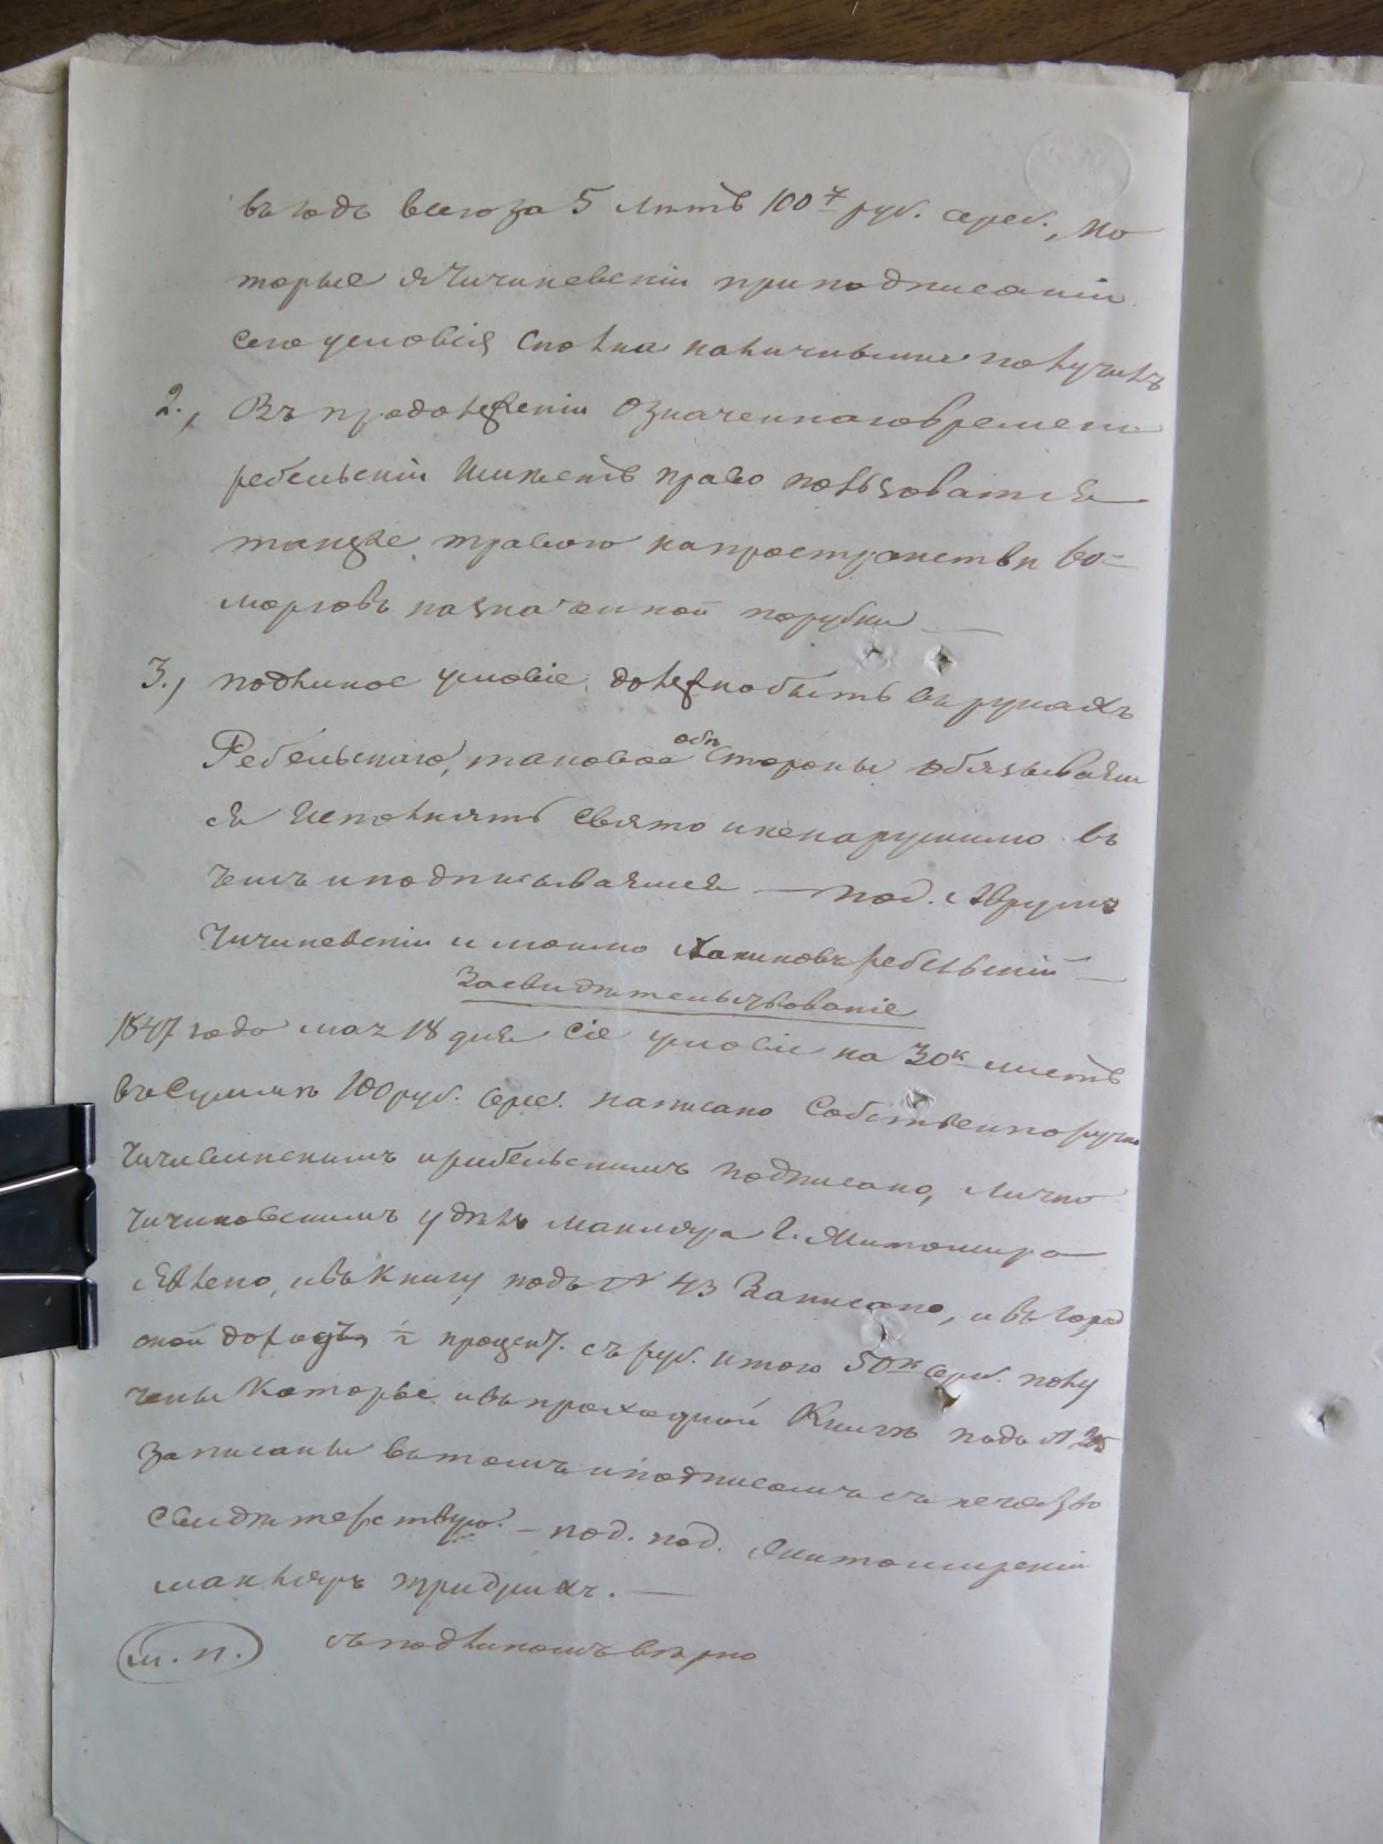 въ годъ всего за 5 лѣтъ 100 руб. сереб., ко
торые я Чичиневскій при подписаніи
сего условія сполна наличными получилъ
2., Въ продолженіи означеннаго времени
ребельскій имѣетъ право пользоватся
также травою на пространстви 60=
морговъ назначенной порубки —
3., подлиное условіе должно быть въ рукахъ
Ребельскаго, таковое обѣ стороны обязываем
ся исполнять свято и ненарушимо въ
чемъ и подписываемся — под. Аврумъ
Чичиневскій и мошко ребельскій —
Засвидѣтельствованіе
1847 года мая 18 дня сіе условіе на 30к листѣ
въ суммѣ 100 руб. сереб. написано собственноручно
и рибельскимъ подписано, лично
Чичиновскимъ у дѣлъ маклера г. Житомира
явлено, и въ книгу подъ № 43 записано, и въ город
ской доходъ ½ процент. съ руб. итого 50к сереб. полу
чены которые и въ приходной книгѣ подъ №
записаны въ томъ и подписомъ съ печатью
свидѣтельствую. — под. под. Житомирскій
маклеръ Фридрихъ. —
м. п. съ подлиномъ вѣрно